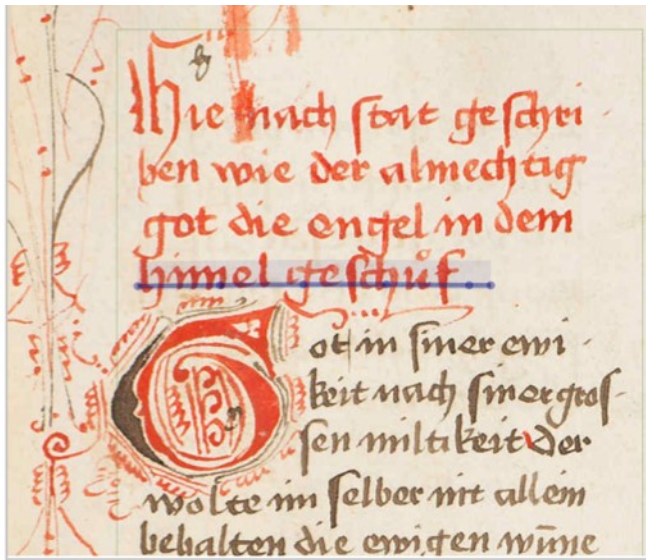 Hie nach stat geschri
ben wie der almechtig
got die engel in dem
himel geschuͦf
Got in siner ewi
keit nach siner gros
sen miltikeit der
wolte im selber nit allein
behalten die ewigen wūne